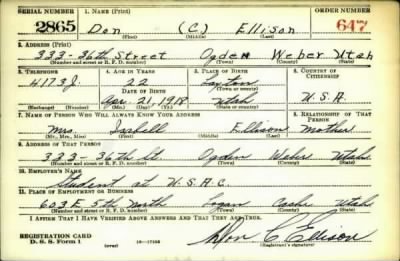 SERIAL NUMBER 1. NAME (Print) ORDER NUMBER
2865 Don (C) Ellison 647
(First) (Middle) (Last)
2. ADDRESS (Print)
333-36th Street Ogden Weber Utah
(Number and street or R. F. D. number) (Town) (County) (State)
3. TELEPHONE 4. AGE IN YEARS 5. PLACE OF BIRTH 6. COUNTRY OF CITIZENSHIP
4173J 22 Layton
DATE OF BIRTH (Town or county)
Apr. 21, 1918 Utah U.S.A.
(Exchange) (Number) (Mo.) (Day) (Yr.) (State or country)
7. NAME OF PERSON WHO WILL ALWAYS KNOW YOUR ADDRESS 8. RELATIONSHIP OF THAT PERSON
Mrs Isabell Ellison Mother
(Mr., Mrs., Miss) (First) (Middle) (Last)
9. ADDRESS OF THAT PERSON
333-36th St. Ogden Weber Utah
(Number and street or R. F. D. number) (Town) (County) (State)
10. EMPLOYER'S NAME
Student at U.S.A.C.
11. PLACE OF EMPLOYMENT OR BUSINESS
603 E 5th North Logan Cache Utah
(Number and street or R. F. D. number) (Town) (County) (State)
I AFFIRM THAT I HAVE VERIFIED ABOVE ANSWERS AND THAT THEY ARE TRUE.
REGISTRATION CARD
D. S. S. Form 1 (over) 16-17105 Don C. Ellison
(Registrant's signature)